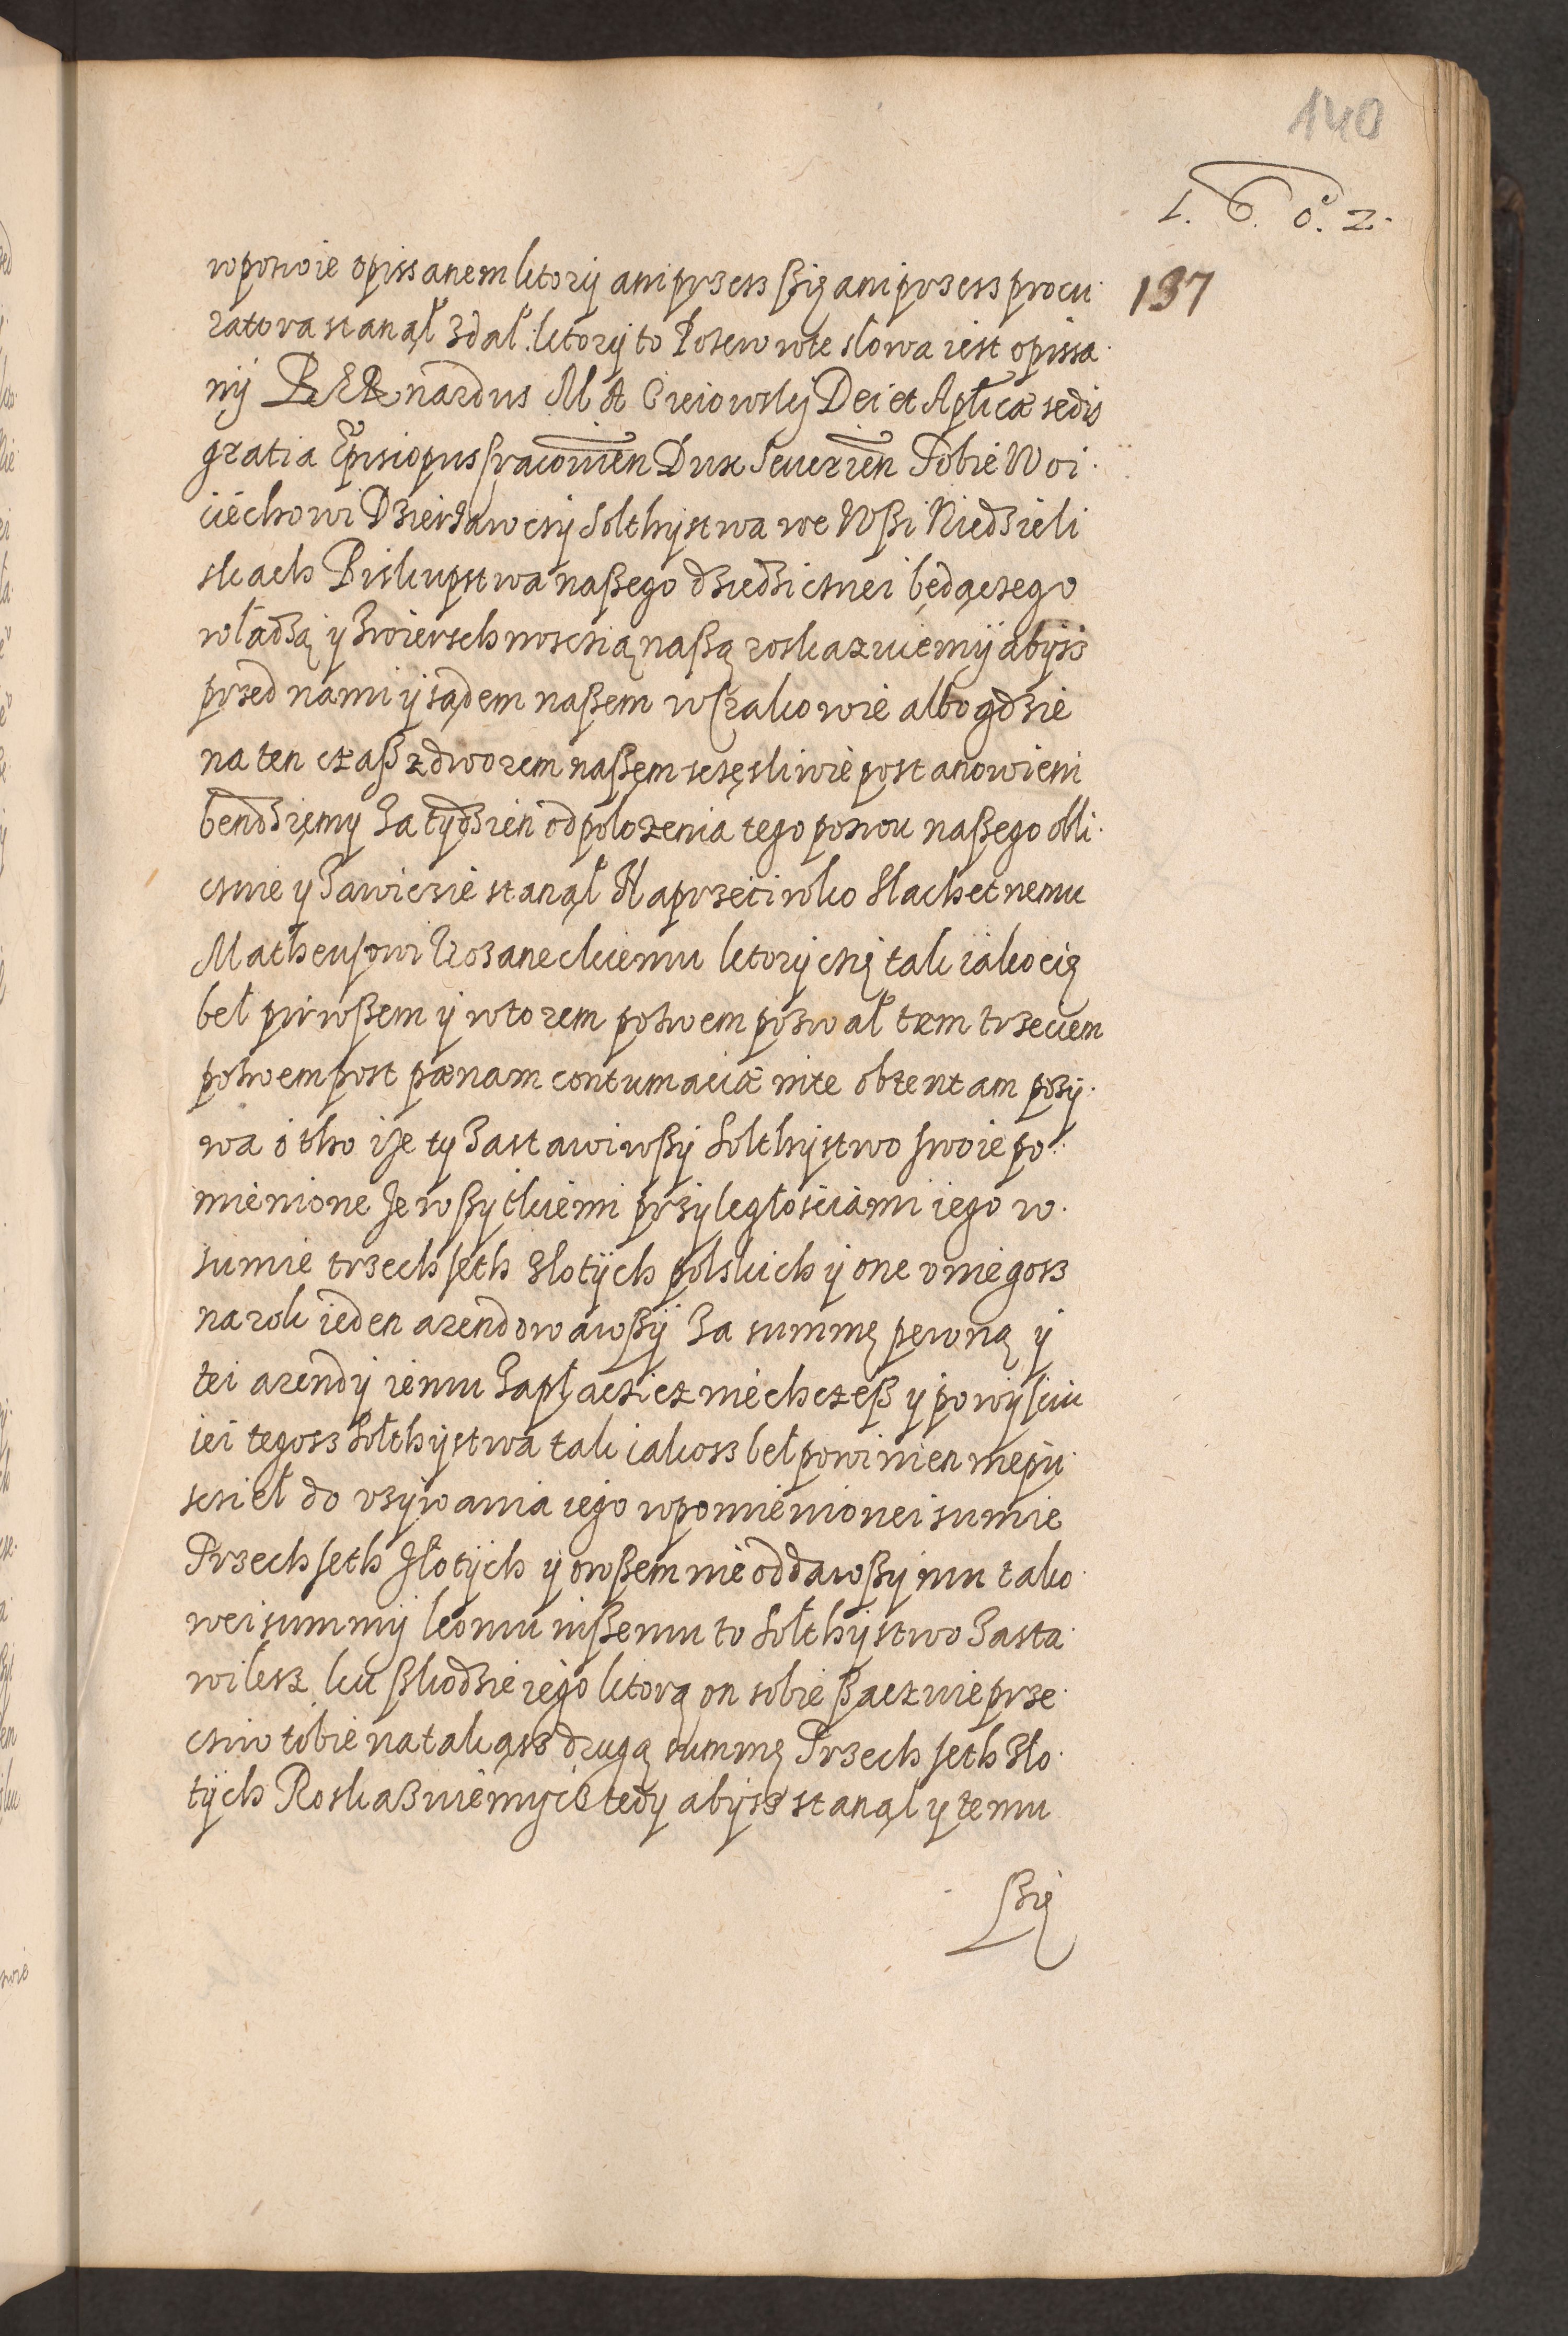 140
1. 6. 0. 2.
137
wpozwie opissanem ktorÿ ani przess ßię ani przess procu
ratora stanął zdał. ktorÿ to Pozew wte słowa iest opissa
nÿ BERnardus MACieiowskÿ Dei et Aplicæ sedis
gratia Episcopus Cracouien Dux Seuerien Tobie Woi
ciechowi Dzierżawcÿ Sołthÿstwa we Wßi Niedzieli
skach Biskupstwa naßego dziedzicznei będączego
władzą y zwierzchnosczią naßą roskazuiemÿ abÿss
przed nami ÿ sądem naßem w Krakowie albo gdzie
na ten czaß z dworem naßem sczęsliwie postanowieni
bendzięmy za tÿdzien od polozenia tego pozwu naßego obli
cznie y zawiczie stanął Naprzeciwko Slachetnemu
Matheußowi Trozaneckiemu ktorÿ czię tak iako cię
beł pirwßem ÿ wtorem pozwem pozwał tem trzeciem
pozwem post pænam contumaciæ rite obtentam pozÿ
wa o tho iże ty zastawiwßÿ Sołthÿstwo swoie po
mienione ze wßytkiemi przÿległosciami iego w
sumie trzech seth złotÿch polskich ÿ one v niegosz
na rok ieden arendowawßÿ za summę pewną ÿ
tei arendÿ iemu zapłaczicz niechczeß ÿ po wÿsciu
iei tegosz Sołthÿstwa tak iakosz beł powinien niepu
scził do vzÿwania iego wpomienionei sumie
Trzech seth złotÿch ÿ owßem nie oddawßy mu tako
wei summÿ komu inßemu to Sołthÿstwo zasta
wiłesz ku ßkodzie iego ktorą on sobie ßaczuie prze
cziw tobie na takąsz drugą summę Trzech seth zło
tÿch Roskazuiemÿ ci tedy abÿss stanął y temu
ßię